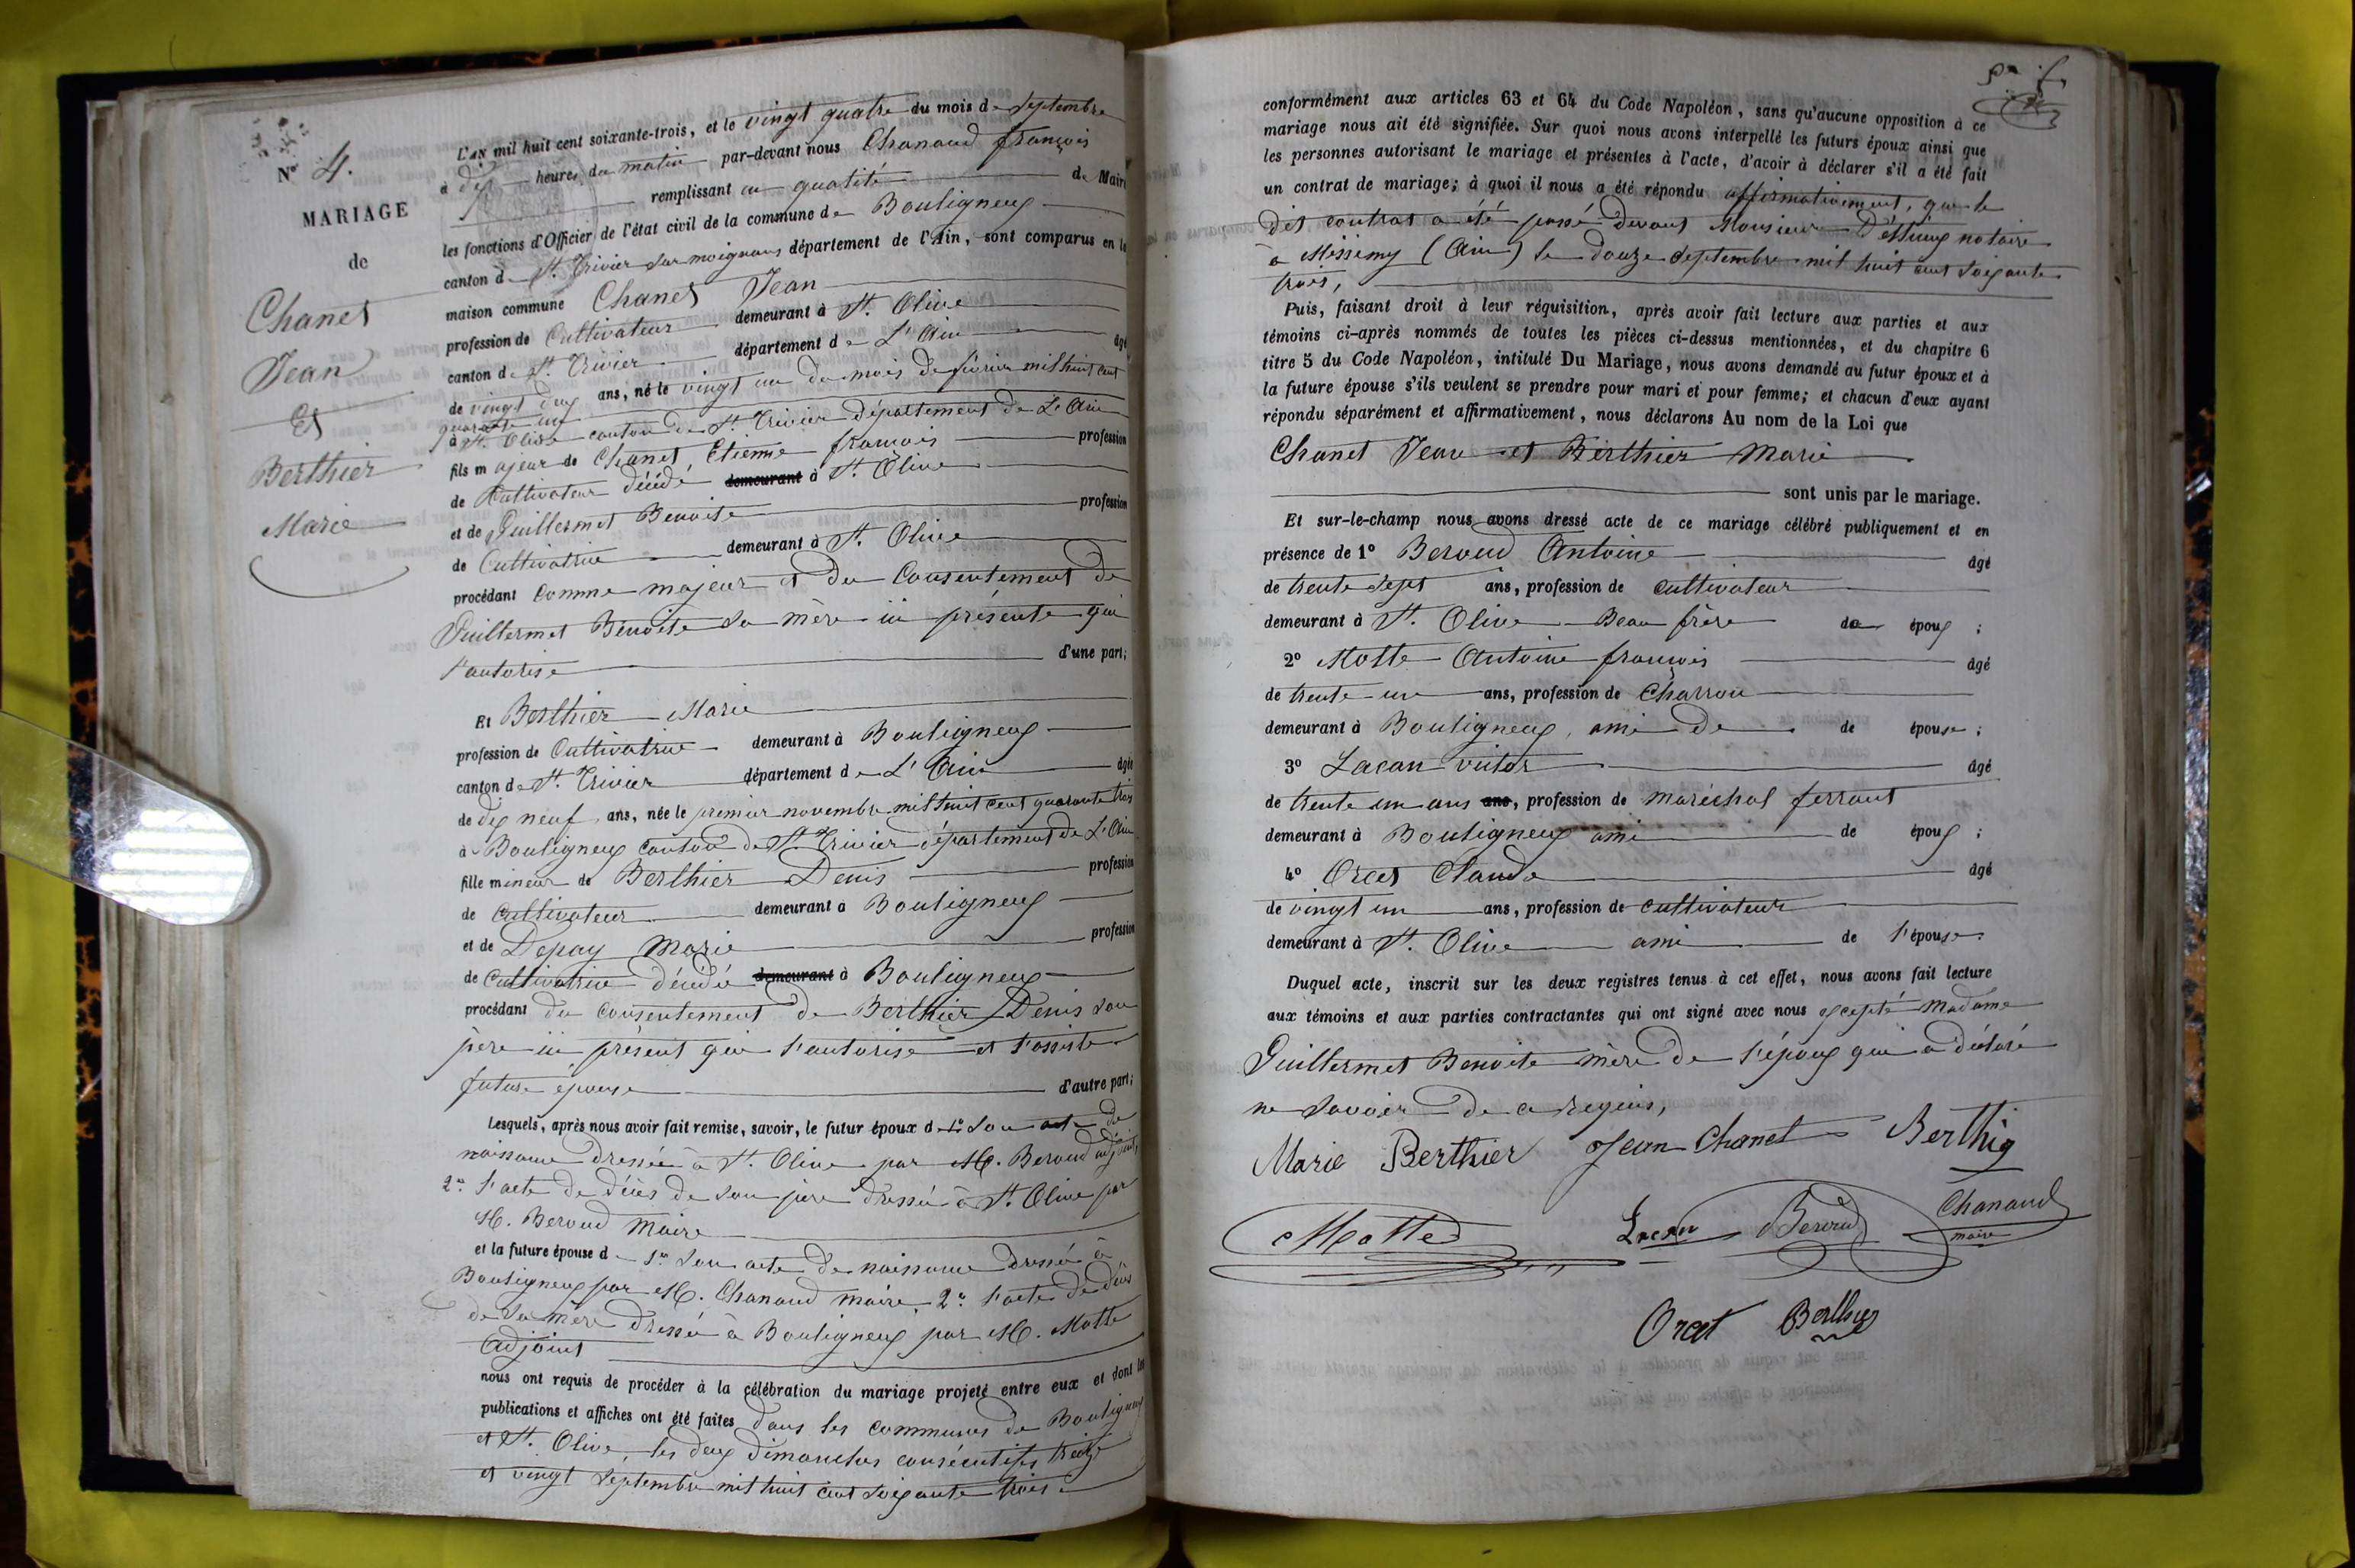 N° 4.
MARIAGE
de
Chanet
Jean
Et
Berthier
Marie
L'an mil huit cent soixante-trois, et le vingt quatre du mois de septembre
à dix heures du matin par-devant nous Chanaud françois
remplissant en qualité de Maire
les fonctions d'Officier de l'état civil de la commune de Bouligneux
canton de St. Trivier sur moignans département de l'Ain, sont comparus en la
maison commune Chanet Jean
profession de Cultivateur demeurant à St. Olive
canton de St. Trivier département de L'Ain âgé
de vingt deux ans, né le vingt un du mois de fevrier mil huit cent
quarante un
à St. Olive canton de St. Trivier département de L'Ain
fils majeur de Chanet Etienne françois profession
de Cultivateur décédé demeurant à St. Olive
et de Guillermet Benoite profession
de Cultivatrice demeurant à St. Olive
procédant comme majeur et du Consentement de
Guillermet Bénoite sa mère ici présente qui
l'autorise d'une part;
Et Berthier Marie
profession de Cultivatrice demeurant à Bouligneux
canton de St. Trivier département de L'Ain âgée
de dix neuf ans, née le premier novembre mil huit cent quarante trois
à Bouligneux canton de St. Trivier département de L'Ain
fille mineur de Berthier Denis profession
de Cultivateur demeurant a Bouligneux
et de Depay Marie profession
de Cultivatrice décédé demeurant à Bouligneux
procédant du consentement de Berthier Denis son
père ici présent qui l'autorise et l'assiste
future épouse d'autre part;
Lesquels, après nous avoir fait remise, savoir, le futur époux de 1° son acte de
naissance dressée à St. Olive par M. Beroud adjoint,
2° l'acte de décès de son père dressé à St. Olive par
M. Beroud Maire
et la future épouse de 1° son acte de naissance dressé à
Bouligneux par M. Chanaud maire, 2° l'acte de décès
de sa mère dressé à Bouligneux par M. Motte
Adjoint
nous ont requis de procéder à la célébration du mariage projeté entre eux et dont les
publications et affiches ont été faites dans les communes de Bouligneux
et St. Olive les deux dimanches consécutifs treize
et vingt septembre mil huit cent soixante trois
conformément aux articles 63 et 64 du Code Napoléon, sans qu'aucune opposition à ce
mariage nous ait été signifiée. Sur quoi nous avons interpellé les futurs époux ainsi que
les personnes autorisant le mariage et présentes à l'acte, d'avoir à déclarer s'il a été fait
un contrat de mariage; à quoi il nous a été répondu affirmativement, que le
dit contrat a été passé devant Monsieur notaire
à Missimy (Ain) le douze septembre mil huit cent soixante
trois,
Puis, faisant droit à leur réquisition, après avoir fait lecture aux parties et aux
témoins ci-après nommés de toutes les pièces ci-dessus mentionnées, et du chapitre 6
titre 5 du Code Napoléon, intitulé Du Mariage, nous avons demandé au futur époux et à
la future épouse s'ils veulent se prendre pour mari et pour femme; et chacun d'eux ayant
répondu séparément et affirmativement, nous déclarons Au nom de la Loi que
Chanet Jean et Berthier Marie
sont unis par le mariage.
Et sur-le-champ nous avons dressé acte de ce mariage célébré publiquement et en
présence de 1° Beroud Antoine âgé
de trente sept ans, profession de cultivateur
demeurant à St. Olive Beau frère de époux ;
2° Motte Antoine françois âgé
de trente un ans, profession de Charron
demeurant à Bouligneux, ami de de épouse ;
3° Lacan victor âgé
de trente un ans ans, profession de maréchal ferrant
demeurant à Bouligneux ami de époux ;
4° Orcet Claude âgé
de vingt un ans, profession de cultivateur
demeurant à St. Olive ami de l'épouse.
Duquel acte, inscrit sur les deux registres tenus à cet effet, nous avons fait lecture
aux témoins et aux parties contractantes qui ont signé avec nous excepté Madame
Guillermet Benoite mère de l'époux qui a déclaré
ne savoir de ce requis,
Marie Berthier Jean Chanet Berthier
Motte Lacan Beroud Chanaud
maire
Orcet Berthier